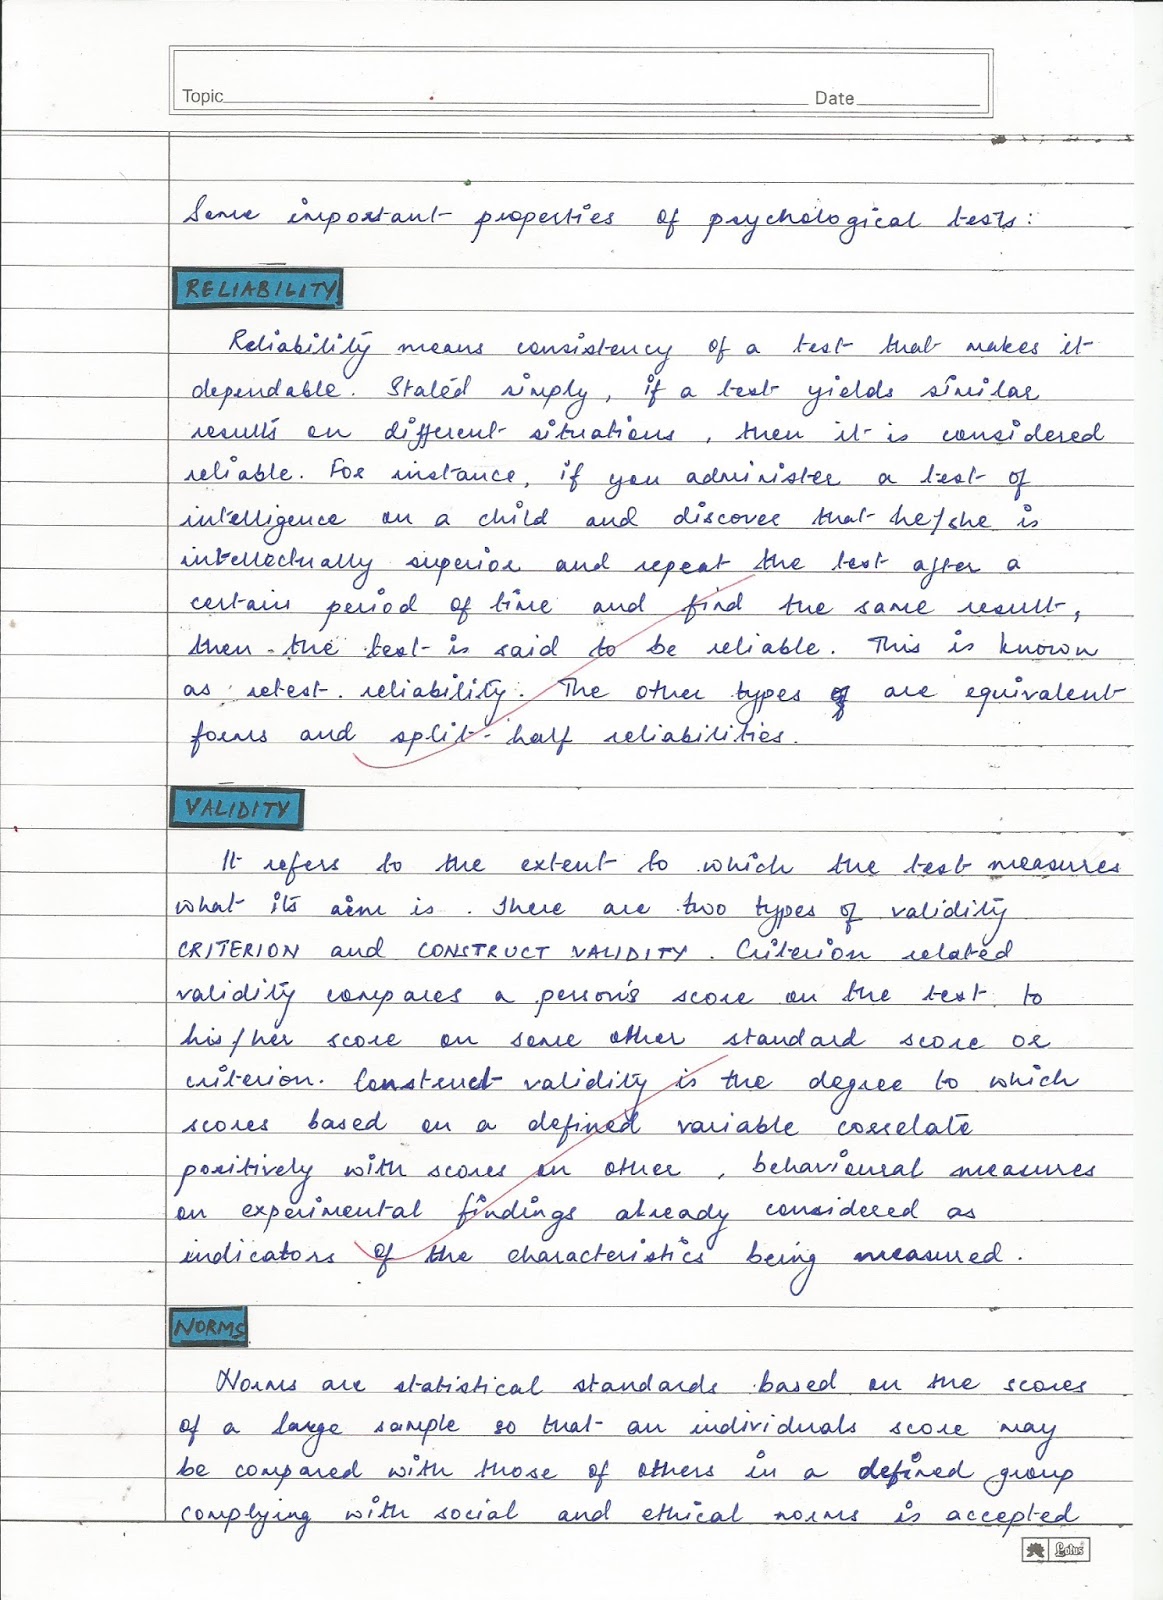 Topic
Date
Some important properties of psychological tests:
RELIABILITY
Reliability means consistency of a test that makes it
dependable. Stated simply, if a test yields similar
results on different situations, then it is considered
reliable. For instance, if you administer a test of
intelligence on a child and discover that he/she is
intellectually superior and repeat the test after a
certain period of time and find the same result,
then the test is said to be reliable. This is known
as retest reliability. The other types of are equivalent
forms and split-half reliabilities.
VALIDITY
It refers to the extent to which the test measures
what its aim is. There are two types of validity
CRITERION and CONSTRUCT VALIDITY. Criterion related
validity compares a person's score on the test to
his/her score on some other standard score or
criterion. Construct validity is the degree to which
scores based on a defined variable correlate
positively with scores on other, behavioural measures
on experimental findings already considered as
indicators of the characteristics being measured.
NORMS
Norms are statistical standards based on the scores
of a large sample so that an individuals score may
be compared with those of others in a defined group
complying with social and ethical norms is accepted
Lotus